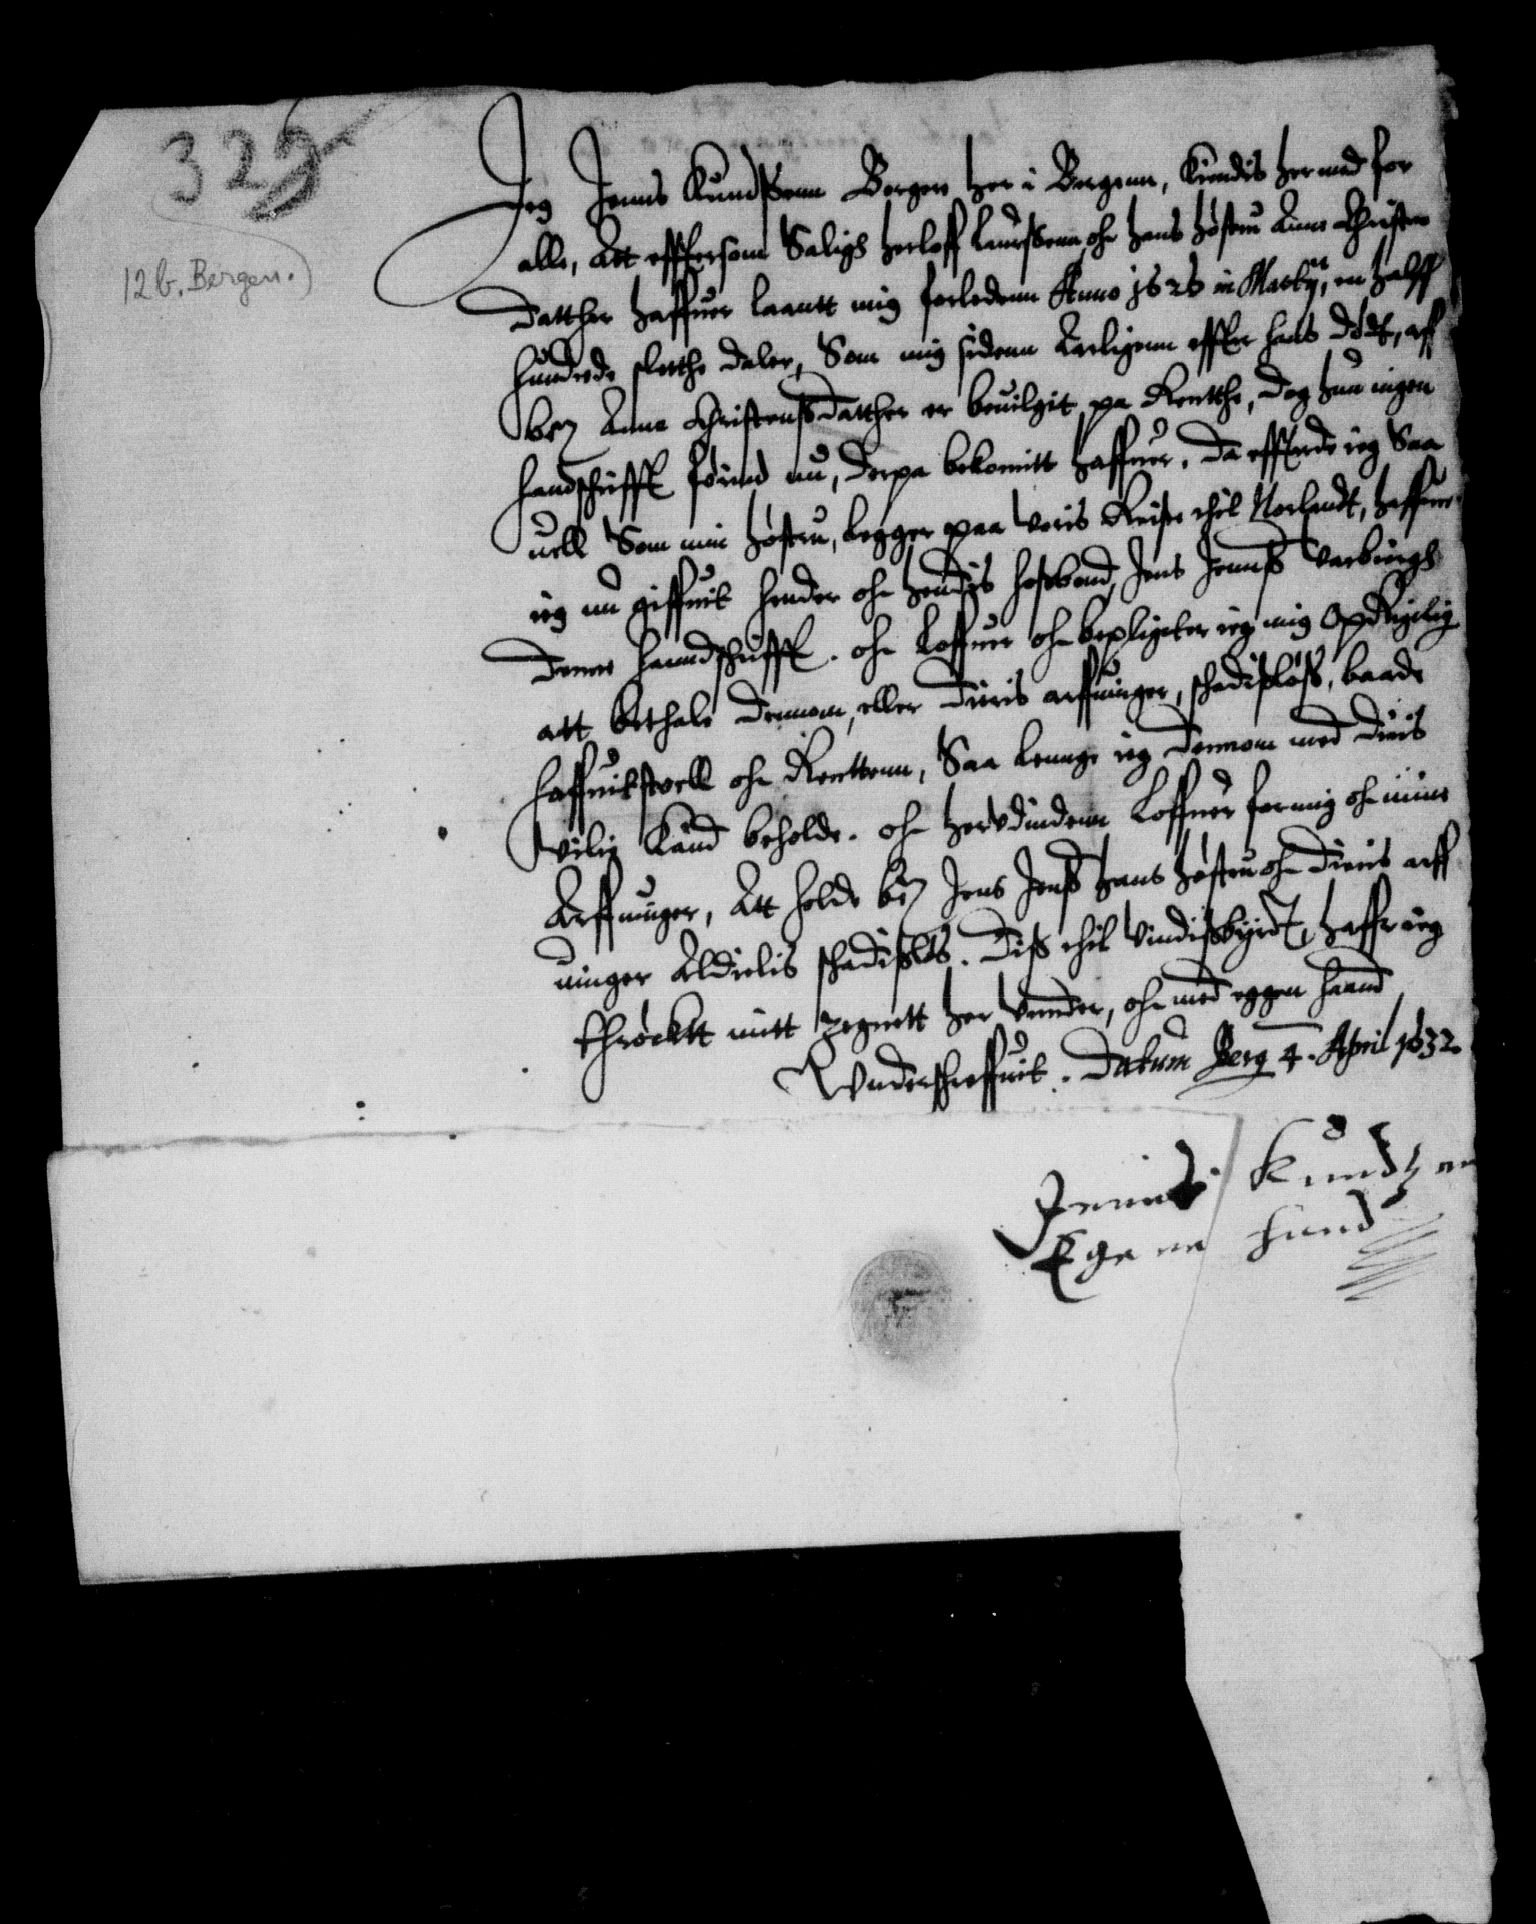 329
12 b. Bergen.)
Jeg Jenns Knudssenn Borger her i Bergenn, Kiendis her med for
alle, Att effthersom Salige Herloff Laurssenn och hans høstru Anne Christens
Datther haffuer laantt mig forledenn Anno 1626 in Martij, en halff
hundrede sletthe daler, Som mig sidenn Aarligenn effter hans dødt, aff
be.te Anne Christenssdatther er beuilgit pa Rentthe, dog hun ingen
handschrifft førind nu, derpa bekomitt haffuer. Da effterdi ieg Saa
uell Som min høstru, begger paa voris Reise thil Norlandt, haffuer
ieg nu giffuit hender och hendis hosbond, Jens Jennss
Denne haandschrifft. och Loffuer och bepligter ieg mig Opricktig
att bethale dennom, eller dieris arffuinger, schadissløss, baade
haffuitstoell och Renttenn, Saa lennge ieg dennom med dieris
vilig Kand beholde. och her vdindenn Loffuer for mig och mine
Arffuinger, Att holde be.te Jens Jenss hans høstru och dieris arff
uinger Aldielis schadissløs. Diss thil Vindissbyrdt, haffr ieg
thrøcktt mitt zegnett her vnnder, och med eggen haand
Vnderschreffuit. Datum Berg 4. April 1632.
Jenns Kundzen
Egenn hand